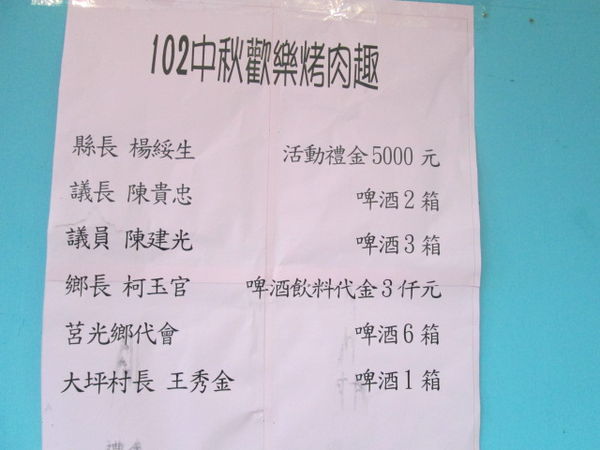 102中秋歡樂烤肉趣
縣長 楊綏生 活動禮金5000元
議長 陳貴忠 啤酒2箱
議員 陳建光 啤酒3箱
鄉長 柯玉官 啤酒飲料代金3仟元
莒光鄉代會 啤酒6箱
大坪村長 王秀金 啤酒1箱